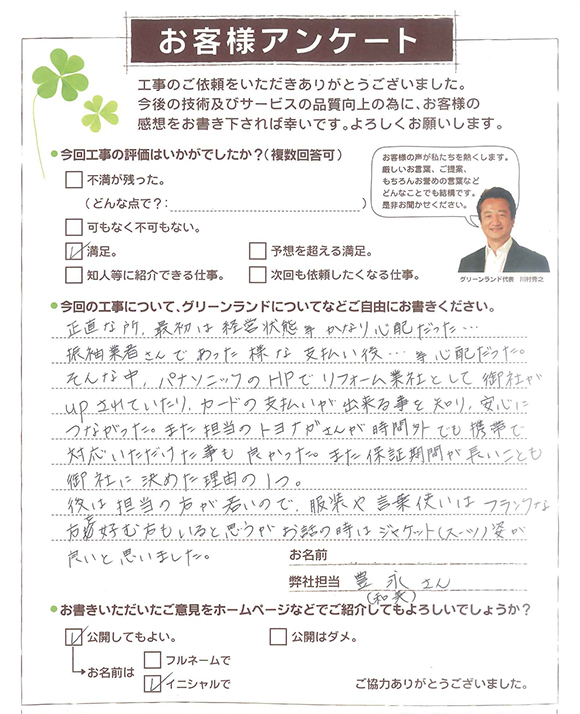 お客様アンケート
工事のご依頼をいただきありがとうございました。
今後の技術及びサービスの品質向上の為に、お客様の
感想をお書き下されば幸いです。よろしくお願いします。
●今回工事の評価はいかがでしたか?(複数回答可)
不満が残った。
(どんな点で?: )
可もなく不可もない。
満足。
予想を超える満足。
知人等に紹介できる仕事。
次回も依頼したくなる仕事。
お客様の声が私たちを熱くします。
厳しいお言葉、ご提案、
もちろんお誉めの言葉など
どんなことでも結構です。
是非お聞かせください。
グリーンランド代表 川村秀之
●今回の工事について、グリーンランドについてなどご自由にお書きください。
正直な所、最初は経営状態等かなり心配だった…
振袖業者さんであった様な支払い後…等心配だった。
そんな中、パナソニックのHPでリフォーム業社として御社が
upされていたり、カードの支払いが出来る事を知り、安心に
つながった。また担当のトヨナガさんが時間外でも携帯で
対応いただけた事も良かった。また保証期間が長いことも
御社に決めた理由の1つ。
後は担当の方が若いので、服装や言葉使いはフランクな
方が好む方もいると思うがお話の時はジャケット(スーツ)姿が
良いと思いました。
お名前
弊社担当 豊永さん
(和英)
●お書きいただいたご意見をホームページなどでご紹介してもよろしいでしょうか?
公開してもよい。
公開はダメ。
お名前は
フルネームで
イニシャルで
ご協力ありがとうございました。